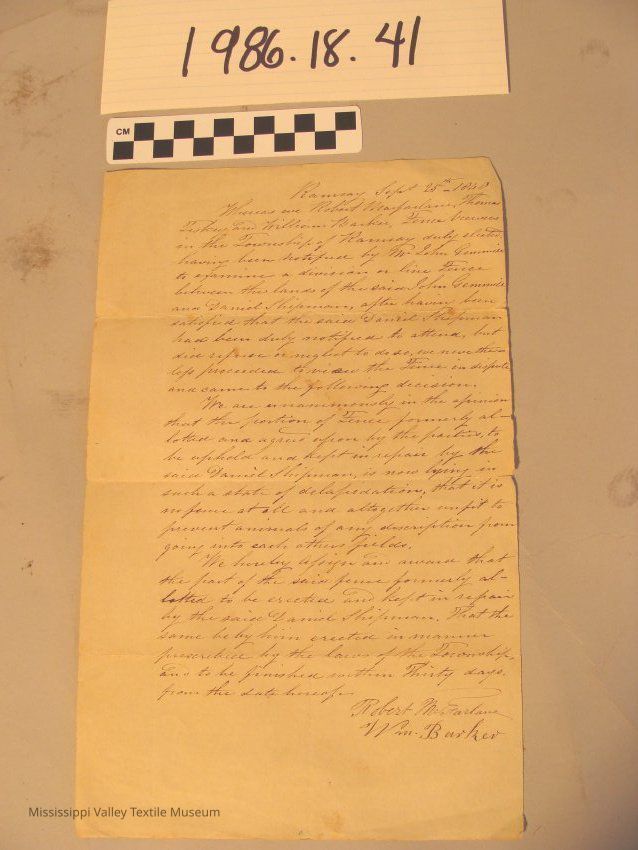 1986.18.41
CM
Ramsay Sept 25th 1848
Whereas we Robert Macfarlane, Thomas
and William Barker, Fence Viewers
in the Township of Ramsay duly elected
having been notified by Mr John Gemmill
to examine a division or line Fence
between the lands of the said John Gemmill
and Daniel Shipman, after having been
satisfied that the said Daniel Shipman
had been duly notified to attend, but
did refuse or neglect to do so, we neverthe-
less proceeded to view the Fence in dispute
and came to the following decision.
We are unanimously in the opinion
that the portion of Fence formerly al-
lotted and agreed upon by the parties, to
be upheld and kept in repair by the
said Daniel Shipman, is now lying in
such a state of delapedation, that it is
no fence at all and altogether unfit to
prevent animals of any discription from
going into each others fields.
We hereby assign and award that
the part of the said fence formerly al-
lotted to be erected and kept in repair
by the said Daniel Shipman. That the
same be by him erected in manner
prescribed by the laws of the Township,
and to be finished within Thirty days,
from the date hereof.
Robert McFarlane
Wm. Barker
Mississippi Valley Textile Museum